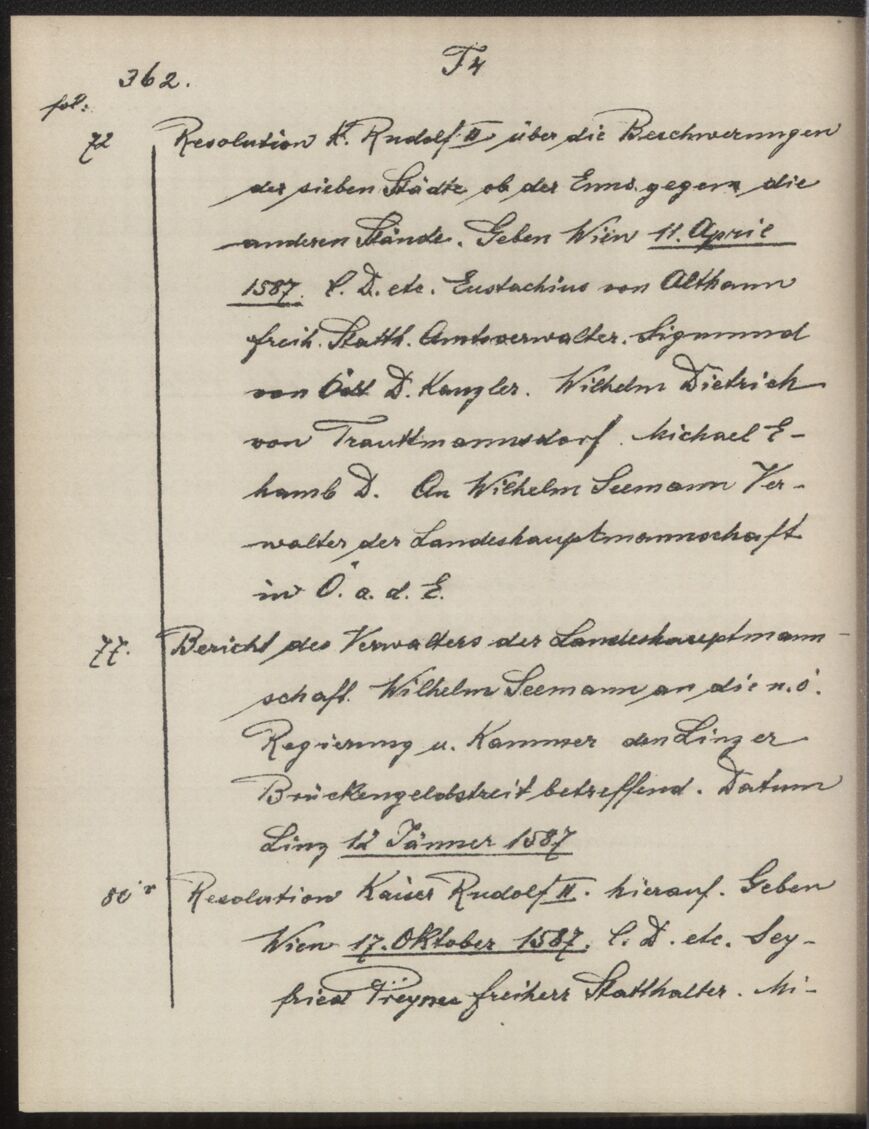 362. F4
fol:
72 Resolution K. Rudolf II über die Beschwerungen
der sieben Städte ob der Enns gegen die
anderen Stände. Geben Wien 11. April
1587. C. D. etc. Eustachius von Althann
freih. Statth. Amtsverwalter. Sigmund
von Ött D. Kanzler. Wilhelm Dietrich
von Trauttmannsdorf. Michael E-
hamb D. An Wilhelm Seemann Ver-
walter der Landeshauptmannschaft
in Ö. a. d. E.
77. Bericht des Verwalters der Landeshauptmann-
schaft Wilhelm Seemann an die n. ö.
Regierung u. Kammer den Linzer
Brückengeldstreit betreffend. Datum
Linz 12 Jänner 1587
80 r Resolution Kaiser Rudolf II. hierauf. Geben
Wien 17. Oktober 1587. C. D. etc. Sey-
fried Preyner freiherr Statthalter. Mi-